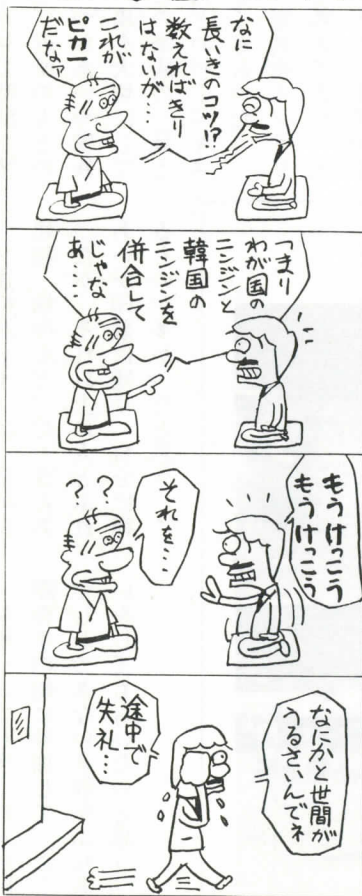 なに
長いきのコツ!?
数えればきり
はないが…
これが
ピカ一
だなァ
つまり
わが国の
ニンジンと
韓国の
ニンジンを
併合して
じゃな
あ……
もうけっこう
もうけっこう
それを…
??
なにかと世間が
うるさいんでネ
途中で
失礼…